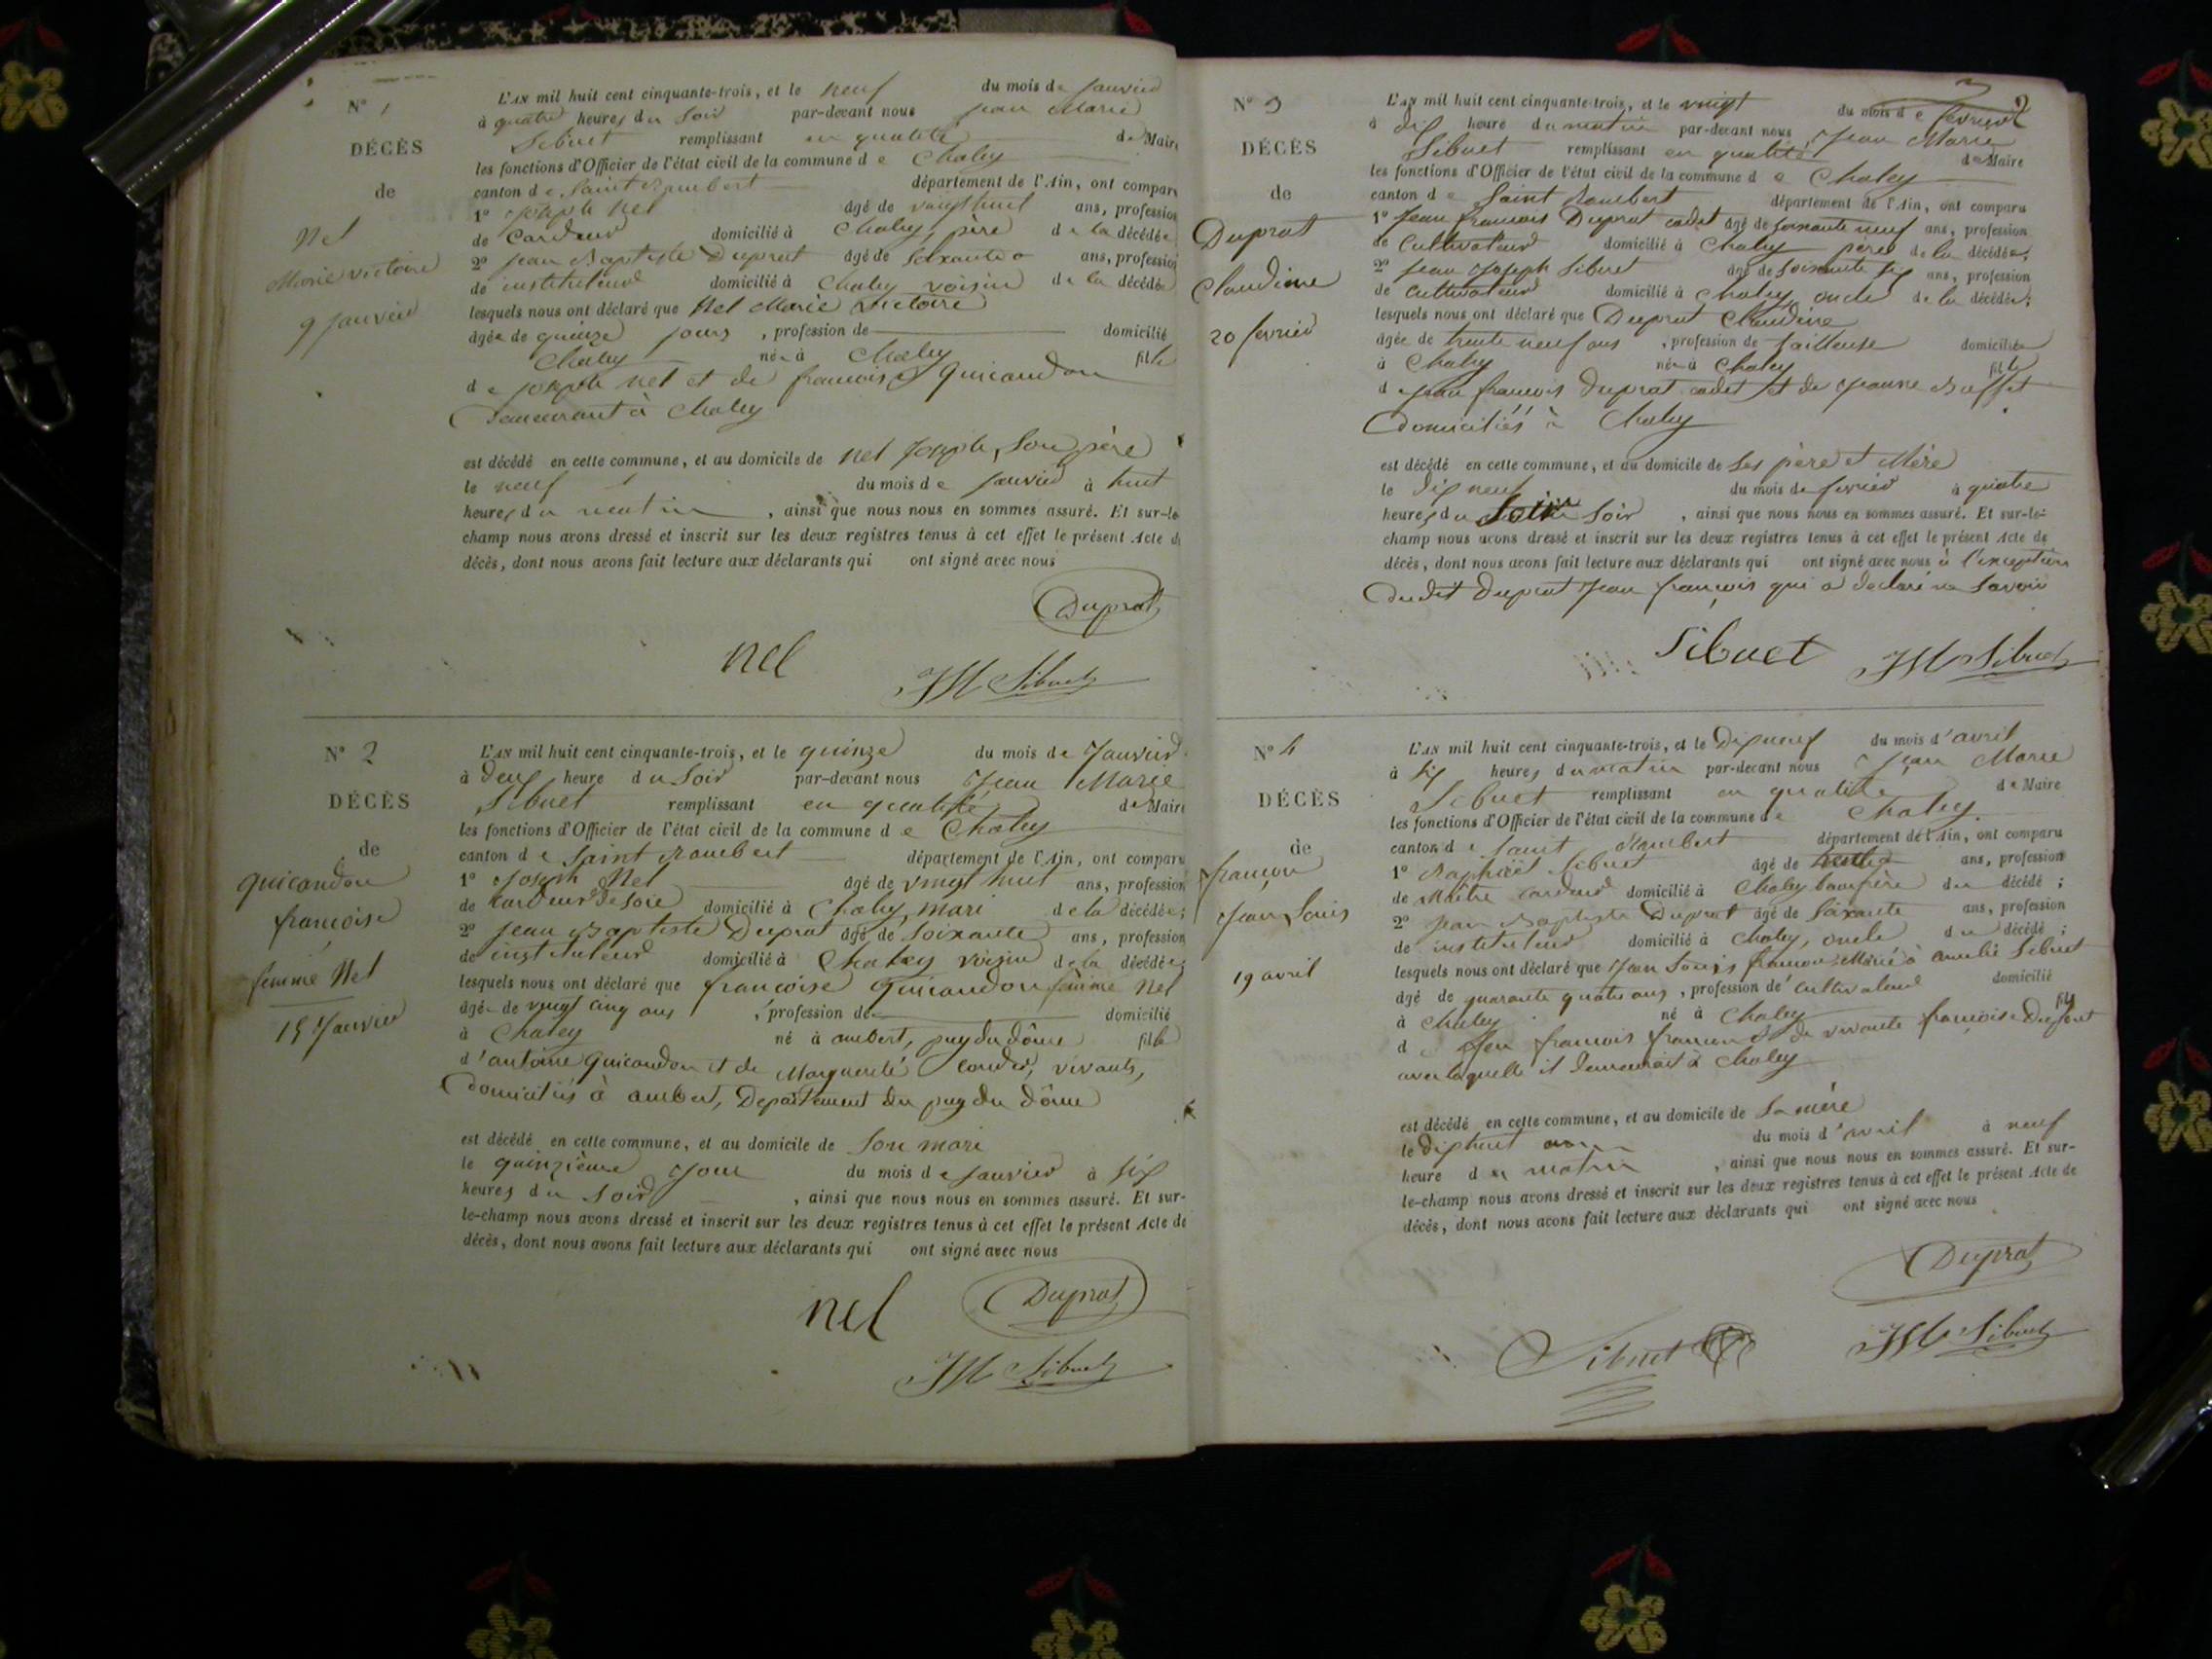 N° 1
DÉCÈS
de
Nel
Marie victoire
9 Janvier
L'AN mil huit cent cinquante-trois, et le neuf du mois de Janvier
à quatre heures du soir par-devant nous Jean Marie
Sibuet remplissant en qualité de Maire
les fonctions d'Officier de l'état civil de la commune de Chaley
canton de Saint Rambert département de l'Ain, ont comparu
1° Joseph Nel âgé de vingt huit ans, profession
de Cardeur domicilié à Chaley, père de la décédée
2° Jean Baptiste Duprat âgé de soixante ans, profession
de instituteur domicilié à Chaley voisin de la décédée
lesquels nous ont déclaré que Nel Marie Victoire
âgée de quinze jours, profession de domicilié
Chaley née à Chaley fille
de joseph Nel et de francoise Quicandon
Demeurant à Chaley
est décédé en cette commune, et au domicile de Nel Joseph, Son père
le neuf du mois de Janvier à huit
heures du matin, ainsi que nous nous en sommes assuré. Et sur-le-
champ nous avons dressé et inscrit sur les deux registres tenus à cet effet le présent Acte de
décès, dont nous avons fait lecture aux déclarants qui ont signé avec nous
Duprat
nel
JM Sibuet
N° 2
DÉCÈS
de
Quicandon
françoise
femme Nel
15 Janvier
L'AN mil huit cent cinquante-trois, et le quinze du mois de Janvier
à Deux heure du Soir par-devant nous Jean Marie
Sibuet remplissant en qualité de Maire
les fonctions d'Officier de l'état civil de la commune de Chaley
canton de Saint Rambert département de l'Ain, ont comparu
1° Joseph Nel âgé de vingt huit ans, profession
de Cardeur de soie domicilié à Chaley, mari de la décédée;
2° Jean Baptiste Duprat âgé de Soixante ans, profession
de instituteur domicilié à Chaley voisin de la décédée;
lesquels nous ont déclaré que françoise Quicandon femme Nel
âgée de vingt cinq ans, profession de domicilié
à Chaley né à ambert, puy du dôme fille
d'antoine Quicandon et de Marguerite vivants,
Domiciliés à ambert, Departement du puy du dôme
est décédé en cette commune, et au domicile de Son mari
le quinzième jour du mois de Janvier à six
heures du soir, ainsi que nous nous en sommes assuré. Et sur-
le-champ nous avons dressé et inscrit sur les deux registres tenus à cet effet le présent Acte de
décès, dont nous avons fait lecture aux déclarants qui ont signé avec nous
nel Duprat
JM Sibuet
N° 3
DÉCÈS
de
Duprat
Claudine
20 fevrier
L'AN mil huit cent cinquante-trois, et le vingt du mois de fevrier
à dix heure du matin par-devant nous Jean Marie
Sibuet remplissant en qualité de Maire
les fonctions d'Officier de l'état civil de la commune de Chaley
canton de Saint Rambert département de l'Ain, ont comparu
1° Jean francois Duprat cadet âgé de soixante neuf ans, profession
de Cultivateur domicilié à Chaley père de la décédée;
2° Jean Joseph Sibuet âgé de soixante six ans, profession
de Cultivateur domicilié à Chaley oncle de la décédée;
lesquels nous ont déclaré que Duprat Claudine
âgée de trente neuf ans, profession de tailleuse domiciliée
à Chaley née à Chaley fille
de Jean francois Duprat cadet et de Jeanne Buffet
Domiciliés à Chaley
est décédé en cette commune, et au domicile de Ses père et Mère
le Dix neuf du mois de fevrier à quatre
heures du Soir, ainsi que nous nous en sommes assuré. Et sur-le-
champ nous avons dressé et inscrit sur les deux registres tenus à cet effet le présent Acte de
décès, dont nous avons fait lecture aux déclarants qui ont signé avec nous à l'exception
Dudit Duprat Jean françois qui a declaré ne Savoir
Sibuet JM Sibuet
N° 4
DÉCÈS
de
françon
Jean Louis
19 avril
L'AN mil huit cent cinquante-trois, et le Dix neuf du mois d'avril
à six heures du matin par-devant nous Jean Marie
Sibuet remplissant en qualité de Maire
les fonctions d'Officier de l'état civil de la commune de Chaley.
canton de Saint Rambert département de l'Ain, ont comparu
1° Raphaël Sibuet âgé de ans, profession
de Maître cardeur domicilié à Chaley beaufrère du décédé;
2° Jean Baptiste Duprat âgé de Soixante ans, profession
de instituteur domicilié à Chaley, oncle du décédé;
lesquels nous ont déclaré que Jean Louis françon Marié à amelie Sibuet
âgé de quarante quatre ans, profession de cultivateur domicilié
à Chaley né à Chaley fils
de feu francois françon et de vivante françoise Dupont
avec laquelle il demeurait à Chaley
est décédé en cette commune, et au domicile de Sa mère
le dix huit du mois d'avril à neuf
heure du matin, ainsi que nous nous en sommes assuré. Et sur-
le-champ nous avons dressé et inscrit sur les deux registres tenus à cet effet le présent Acte de
décès, dont nous avons fait lecture aux déclarants qui ont signé avec nous
Duprat
Sibuet JM Sibuet